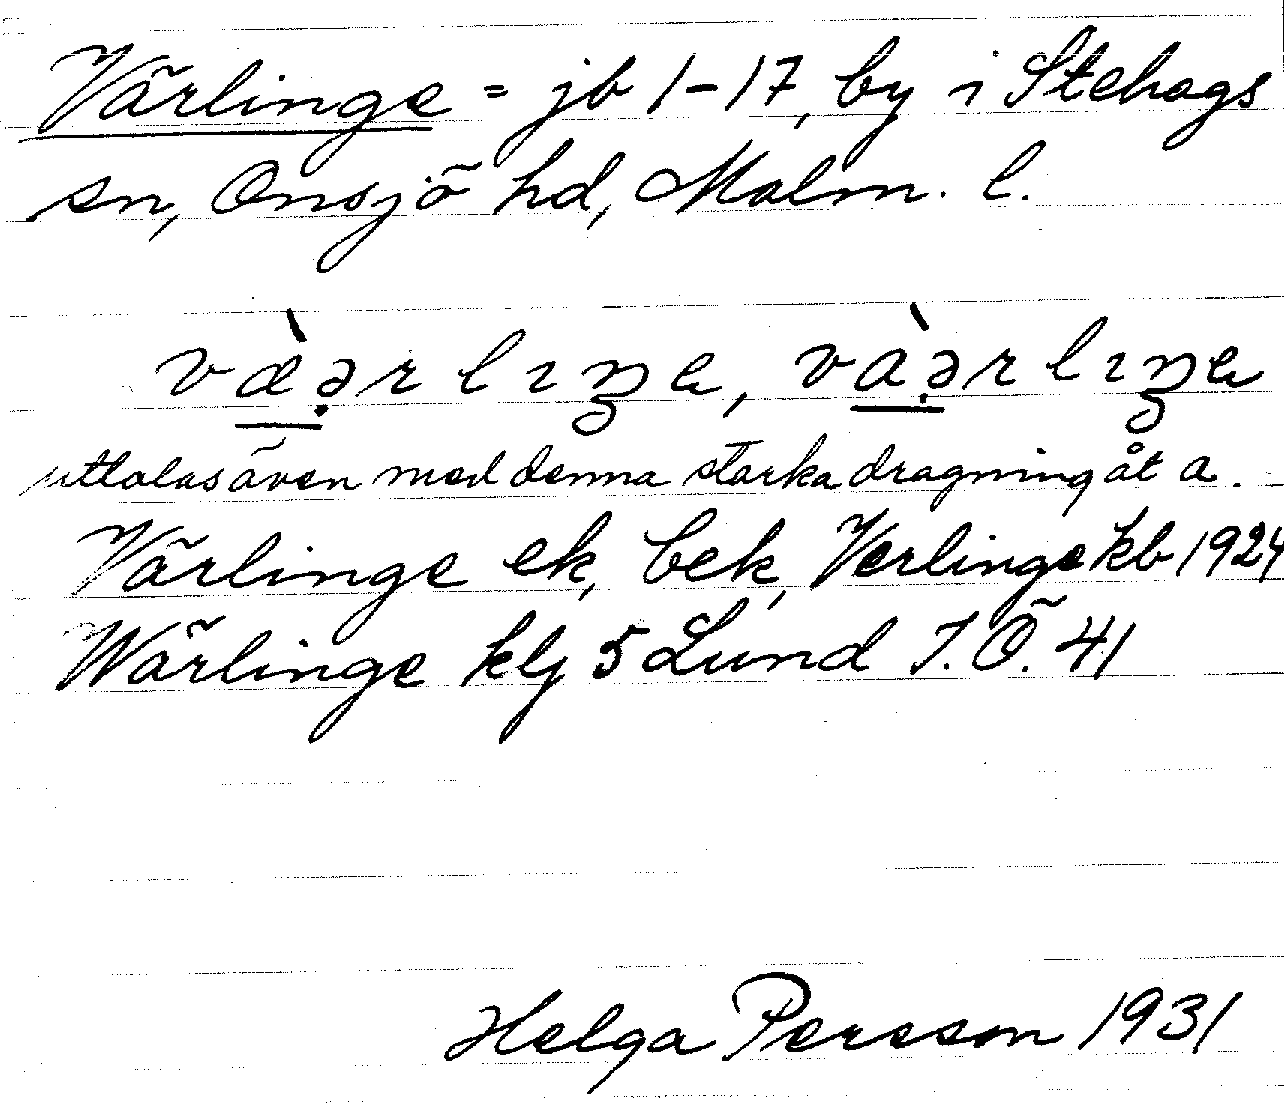 Värlinge = jb 1-17, by i Stehags
sn, Onsjö hd, Malm. l.
væ̀ərlıŋe, vàərlıŋe
uttalas även med denna starka dragning åt a.
Värlinge ek, bek, Verlinge kb 1924
Wärlinge klj 5 Lund I.Ö. 41
Helga Persson 1931